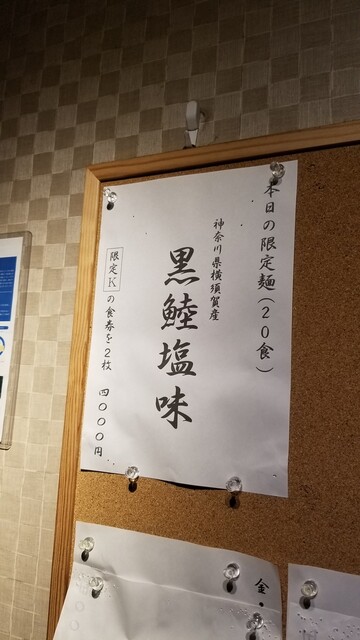 本日の限定麺(20食)
神奈川県横須賀産
黒鯥塩味
限定Kの食券を2枚 四000円
金・